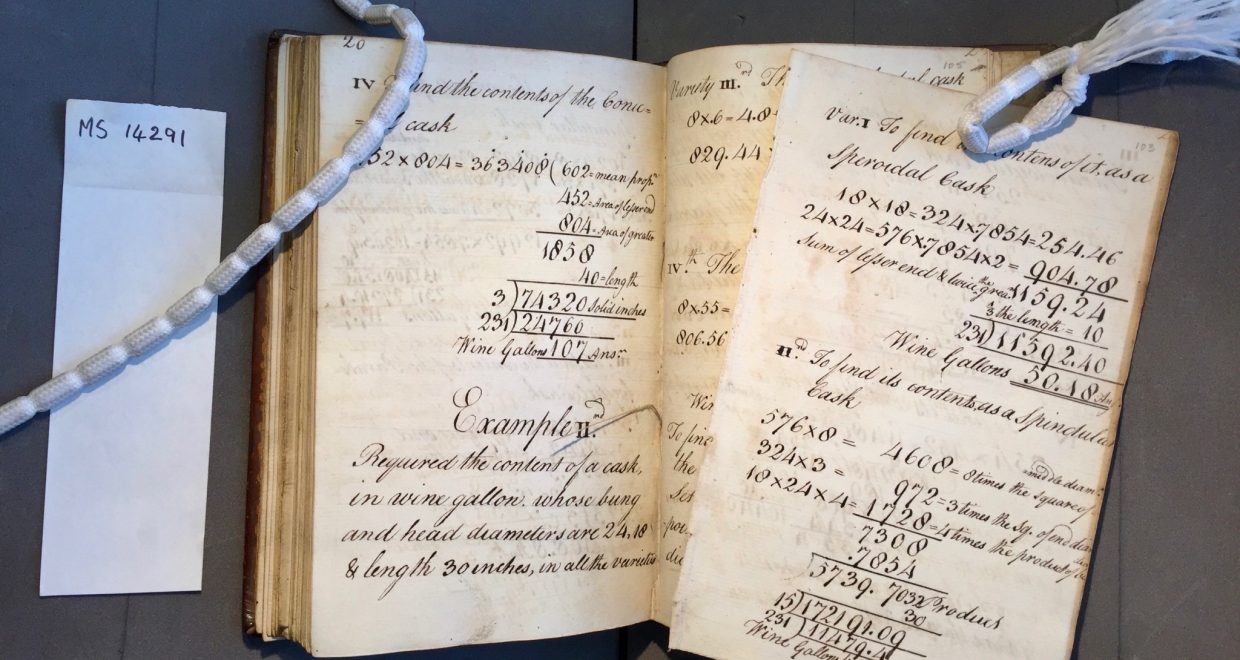 MS 14291
20
IV ind the contents of the Conic=
= cask
52 × 804 = 363408 ( 602 = mean prop.
452 = Area of lesser end
804 - Area of greater
1858
40 = length
3 ) 74320 Solid inches
231 ) 24760
Wine Gallons 107 Ansr.
Example IInd.
Required the content of a cask,
in wine gallon. whose bung
and head diameters are 24,18
& length 30 inches, in all the varieties
Variety III.rd Th
8×6=4.8
829.44
IV.th The
8×55=
806.56
Win
To find
the
105
cask
103
Var. I To find contents of it. as a
Speroidal Cask
18×18=324×.7854=254.46
24×24=576×.7854×2= 904.78
Sum of lesser end & twice the great 1159.24
3 the length = 10
231 ) 11592.40
Wine Gallons 50.18 An
II.d To find its contents, as a Spindular
Cask
576×8= 4608 = 8 times the square of middle diam.
324×3= 972 = 3 times the Sq. of end dia
18×24×4= 1728 = 4 times the product of
7308
.7854
5739.7032 Product
30
15 ) 172191.09
231 ) 11479.4
Wine Gallons